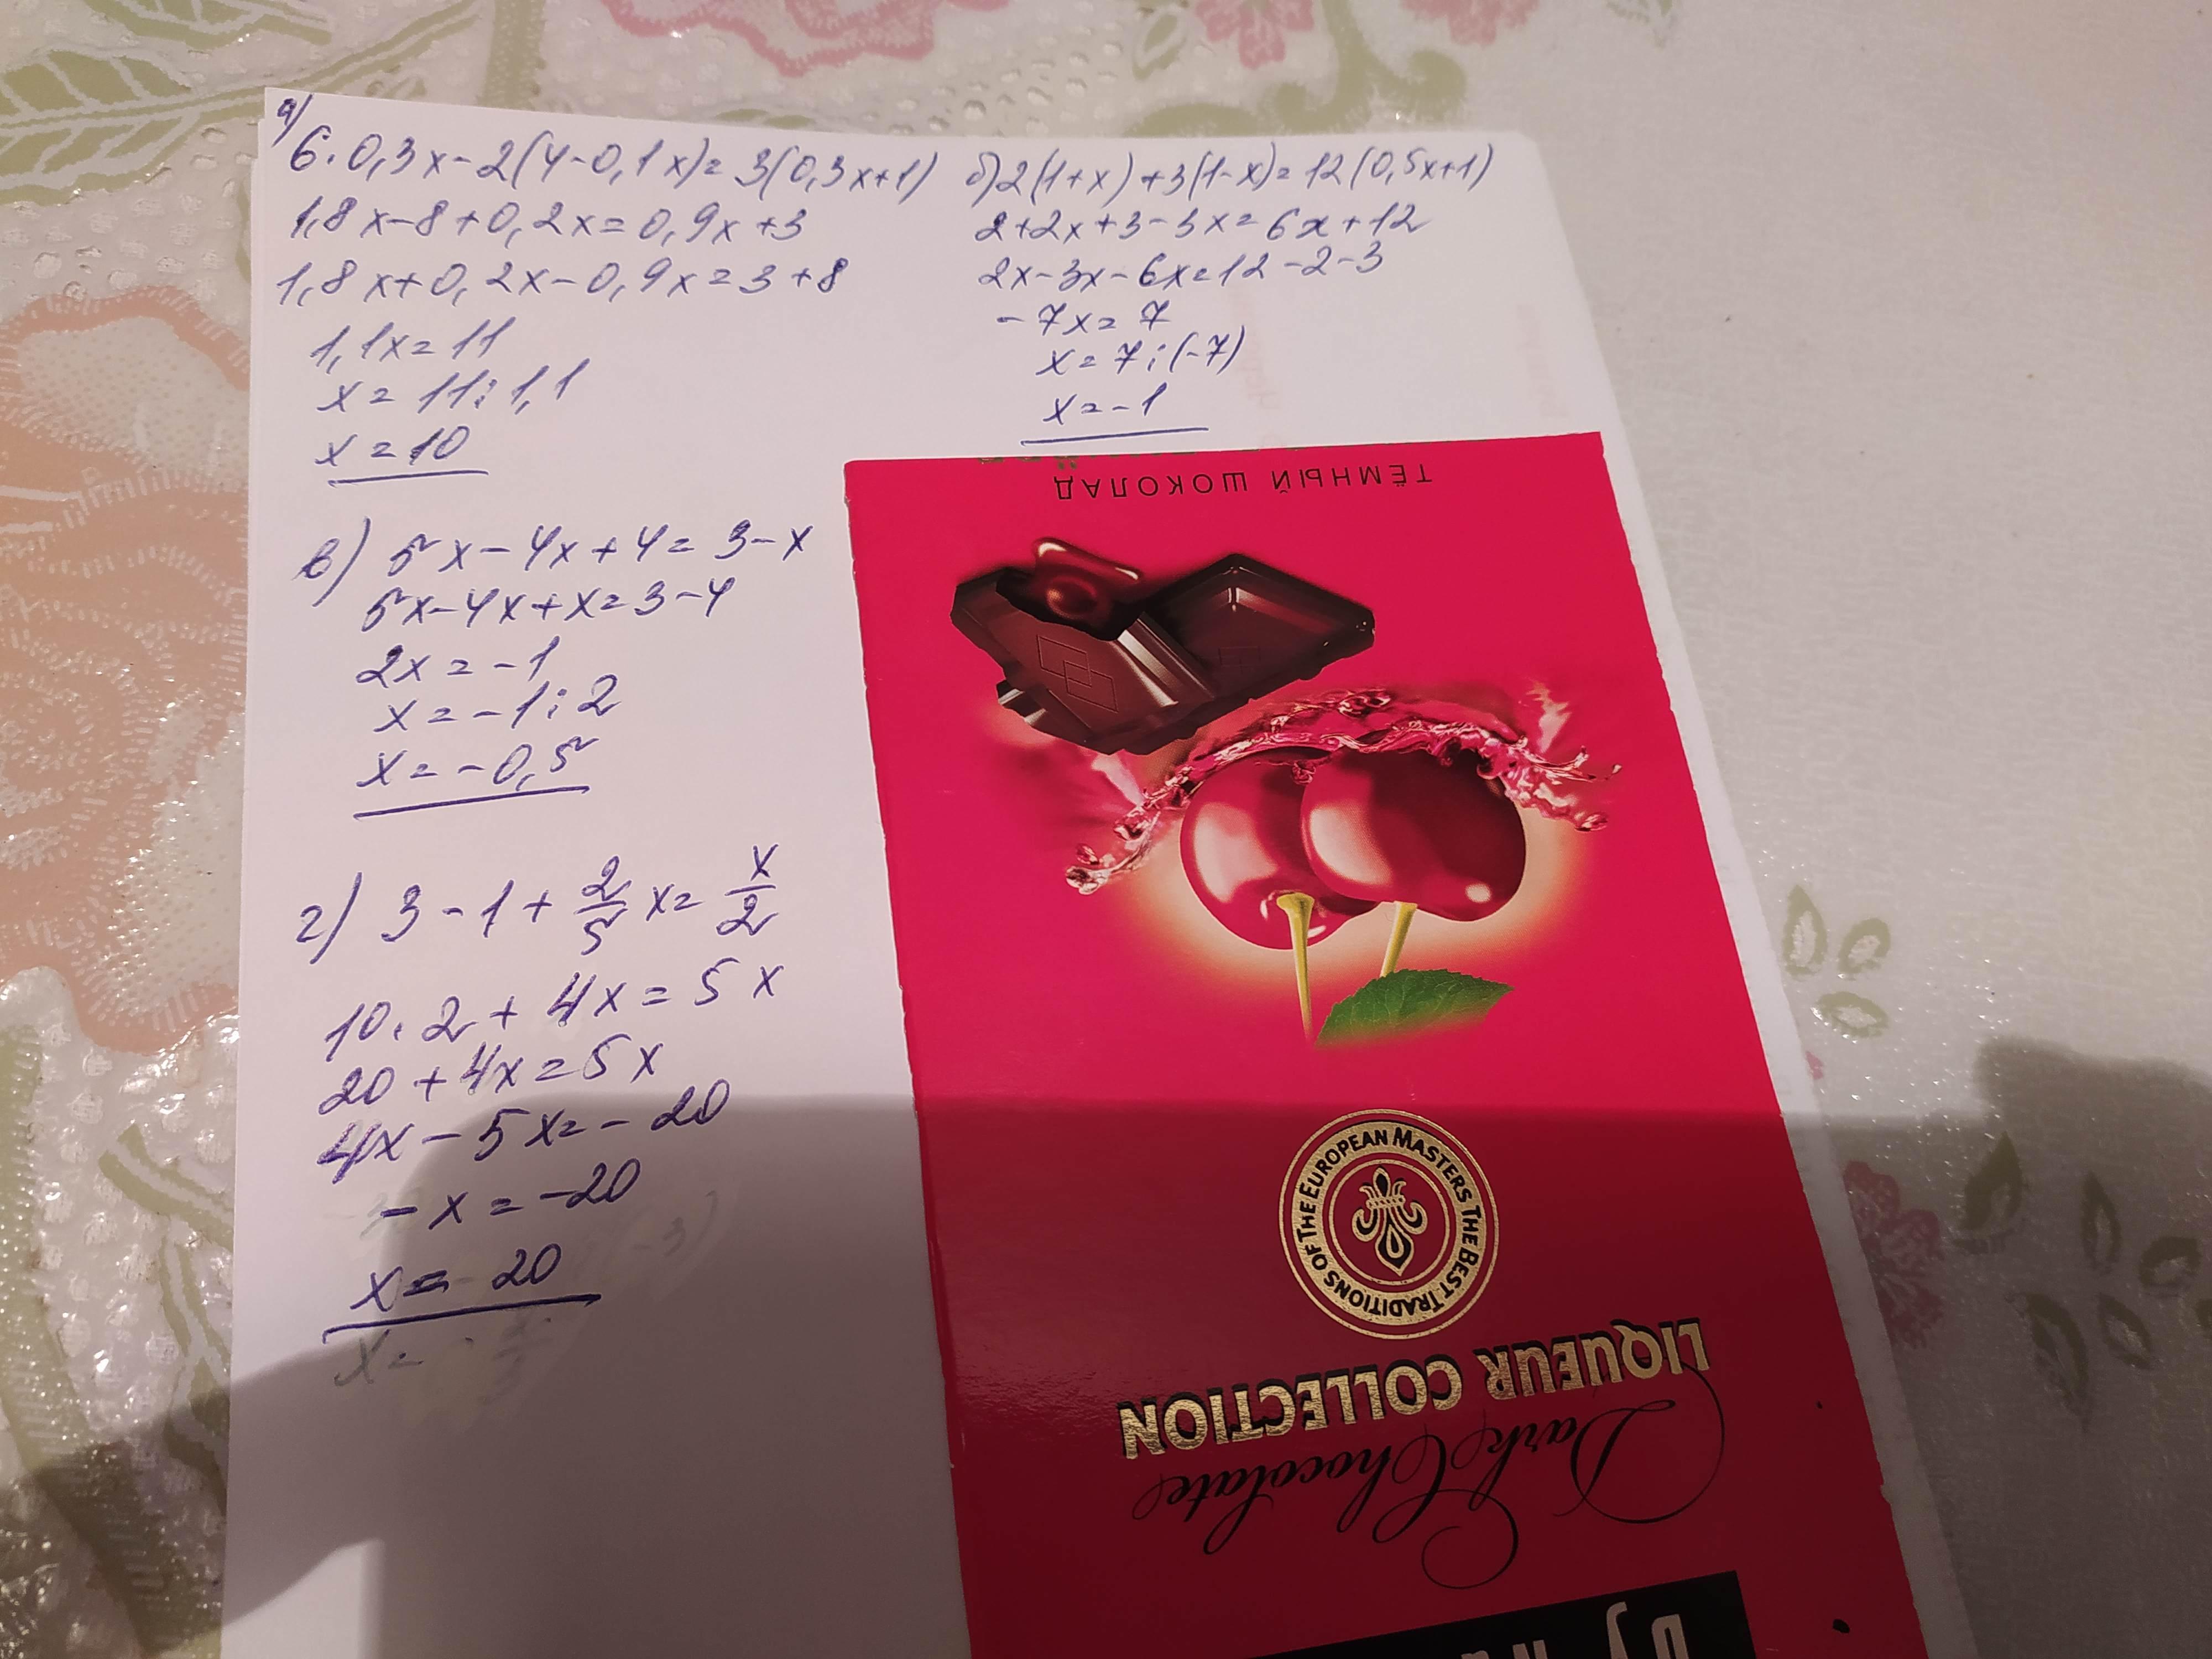 а)
6·0,3x-2(4-0,1x)=3(0,3x+1)
1,8x-8+0,2x=0,9x+3
1,8x+0,2x-0,9x=3+8
1,1x=11
x=11:1,1
x=10
б) 2(1+x)+3(1-x)=12(0,5x+1)
2+2x+3-3x=6x+12
2x-3x-6x=12-2-3
-7x=7
x=7:(-7)
x=-1
в) 5x-4x+4=3-x
5x-4x+x=3-4
2x=-1
x=-1:2
x=-0,5
г) 3-1+2/5x=x/2
10·2+4x=5x
20+4x=5x
4x-5x=-20
-x=-20
x=20
x=
ТЁМНЫЙ ШОКОЛАД
THE BEST TRADITIONS OF THE EUROPEAN MASTERS
LIQUEUR COLLECTION
Dark Chocolate